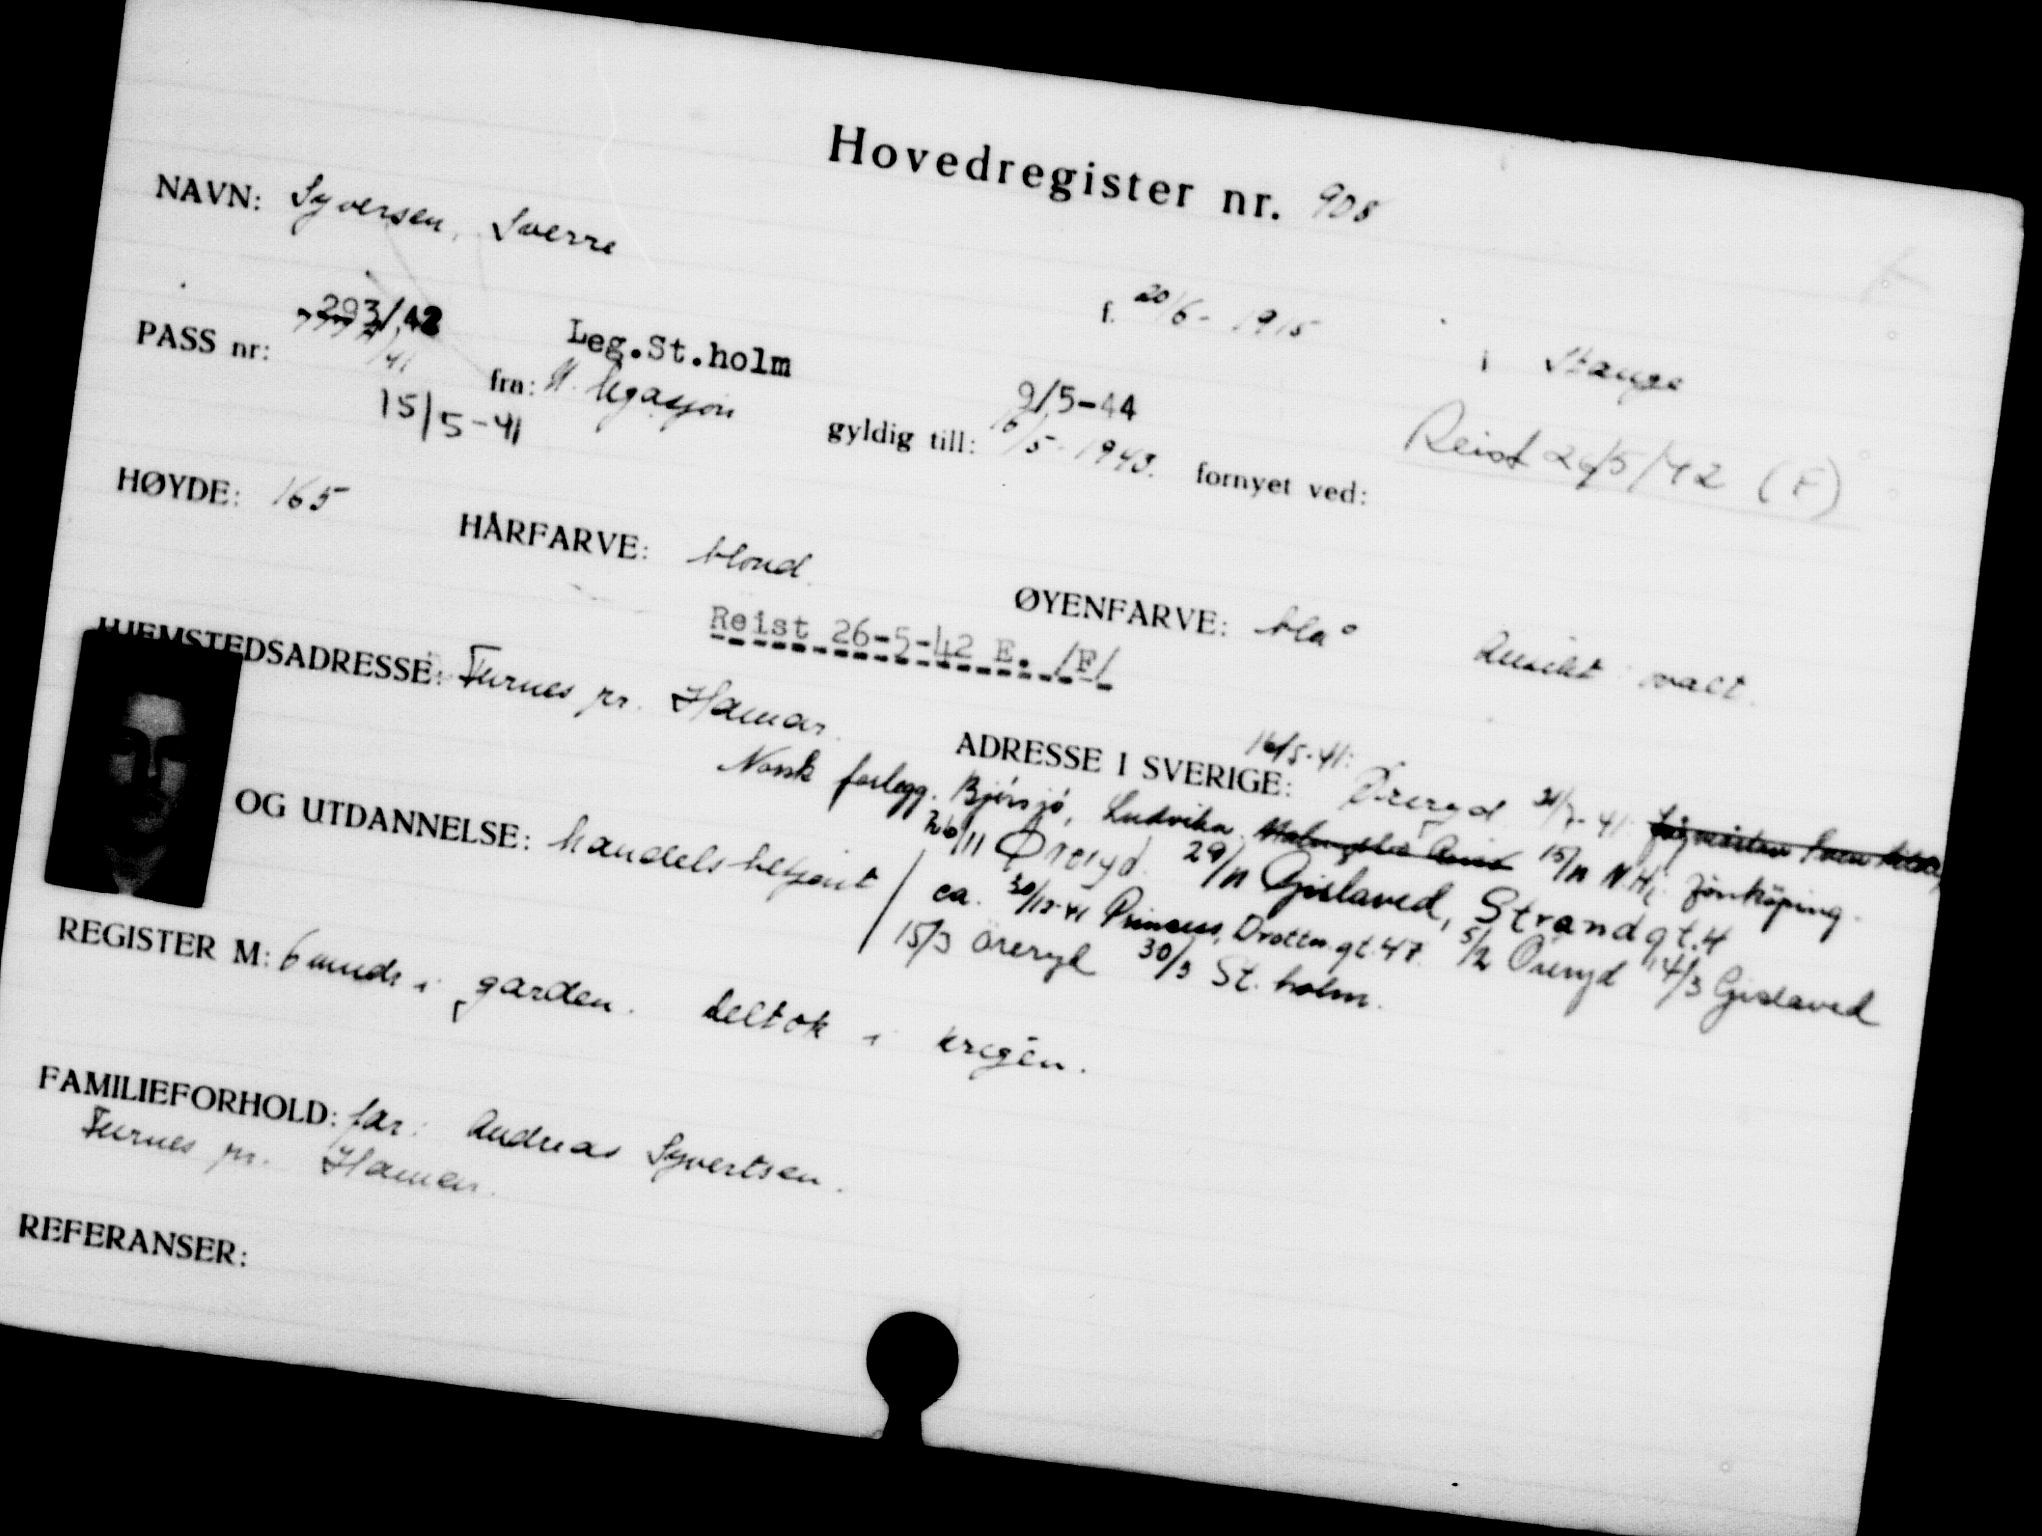 Hovedregister nr. 908
NAVN: Syversen, Sverre
f. 20/6-1915 i Stange
293/42 Leg.St.holm 9/5-44
PASS nr: /41 fra: N. legasjon gyldig till: 16/5-1943. fornyet ved:
15/5-41
Reist 26/5/42 (F)
HØYDE: 165 HÅRFARVE: blond. ØYENFARVE: blå Ansikt: ovalt.
Reist 26-5-42 E. /F/
HJEMSTEDSADRESSE: Furnes pr. Hamar.
ADRESSE I SVERIGE: 16/5-41: Øreryd
Norsk forlegg. Bjørsjö, Ludvika. 15/11 N.H. Jönköping.
OG UTDANNELSE: handelsbetjent
26/11 Øreryd. 29/11 Gislaved, Strandgt. 4
ca. 30/12-41 Princess, Drottn.gt. 47. 5/2 Öreryd 14/3 Gislaved
15/3 Öreryd 30/3 St. holm.
REGISTER M: 6 mndr i garden. Deltok i krigen.
FAMILIEFORHOLD: far: Andreas Syvertsen.
Furnes pr. Hamar.
REFERANSER: